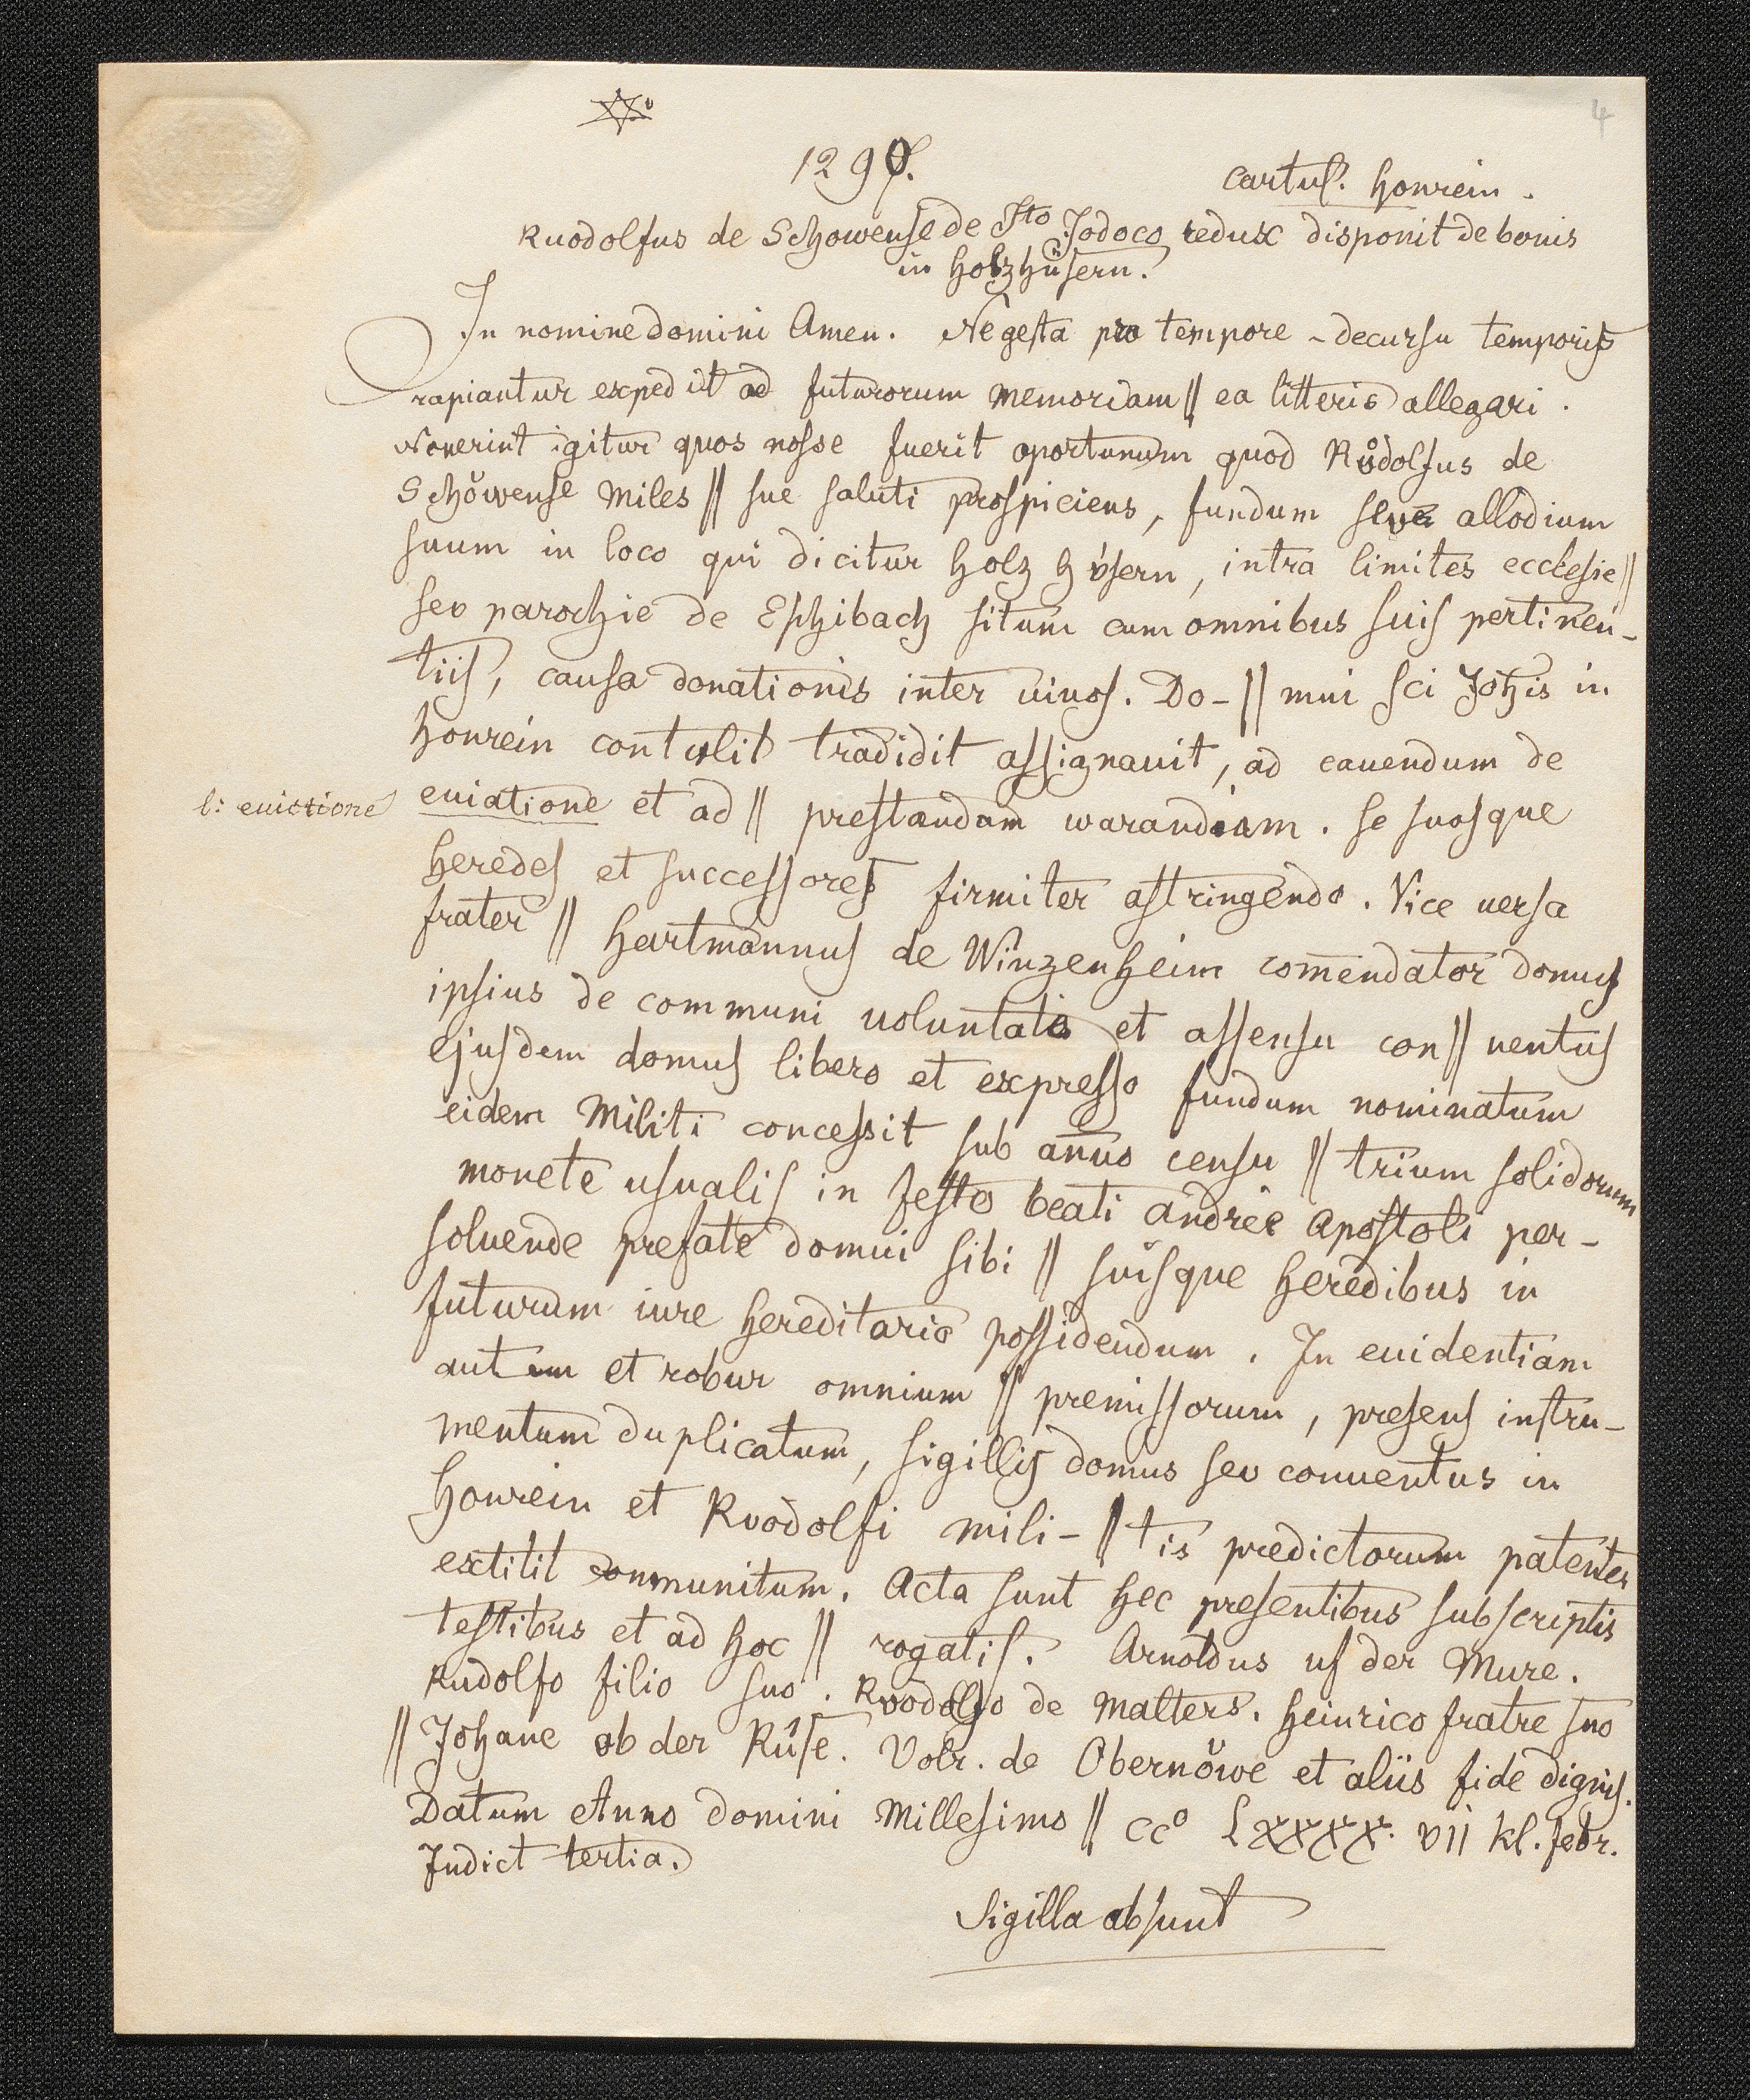 4
1290.
Cartul. honrein.
Ruodolfus de Schowense de Sto Jodoco redux disponit de bonis
in holzhüsern.
In nomine domini Amen. Ne gesta pro tempore decursu temporis
rapiantur expedit ad futurorum memoriam || ea litteris allegari.
Noverint igitur quos nosse fuerit oportunum quod Růdolfus de
Schöwense miles || sue saluti prospiciens, fundum seve allodium
suum in loco qui dicitur holzhv́sern, intra limites ecclesie ||
seu parochie de Eschibach situm cum omnibus suis pertinen-
tiis, causa donationis inter uiuos. Do- || mui sci Johis in
honrein contulit tradidit assignauit, ad cauendum de
l: euictione
euiatione et ad || prestandam warandiam. se suosque
heredes et successores firmiter astringendo. Vice uersa
frater || hartmannus de Winzenheim comendator domus
ipsius de communi uoluntate et assensu con || uentus
ejusdem domus libero et expresso fundum nominatum
eidem militi concessit sub annuo censu || trium solidorum
monete usualis in festo beati andree apostoli per-
soluende prefate domui sibi || suisque heredibus in
futurum iure hereditario possidendum. In euidentiam
autem et robur omnium || premissorum, presens instru-
mentum duplicatum, sigillis domus seu conuentus in
honrein et Ruodolfi mili- || tis predictorum patenter
extitit communitum. Acta sunt hec presentibus subscriptis
testibus et ad hoc || rogatis. Arnoldus uf der Mure.
Rudolfo filio suo. Ruodolfo de Malters. heinrico fratre suo
|| Johane ob der Rûse. Volr. de Obernöwe et aliis fide dignis.
Datum Anno domini Millesimo || CCo LXXXX. VII kl. febr.
Indict tertia.
Sigilla absunt